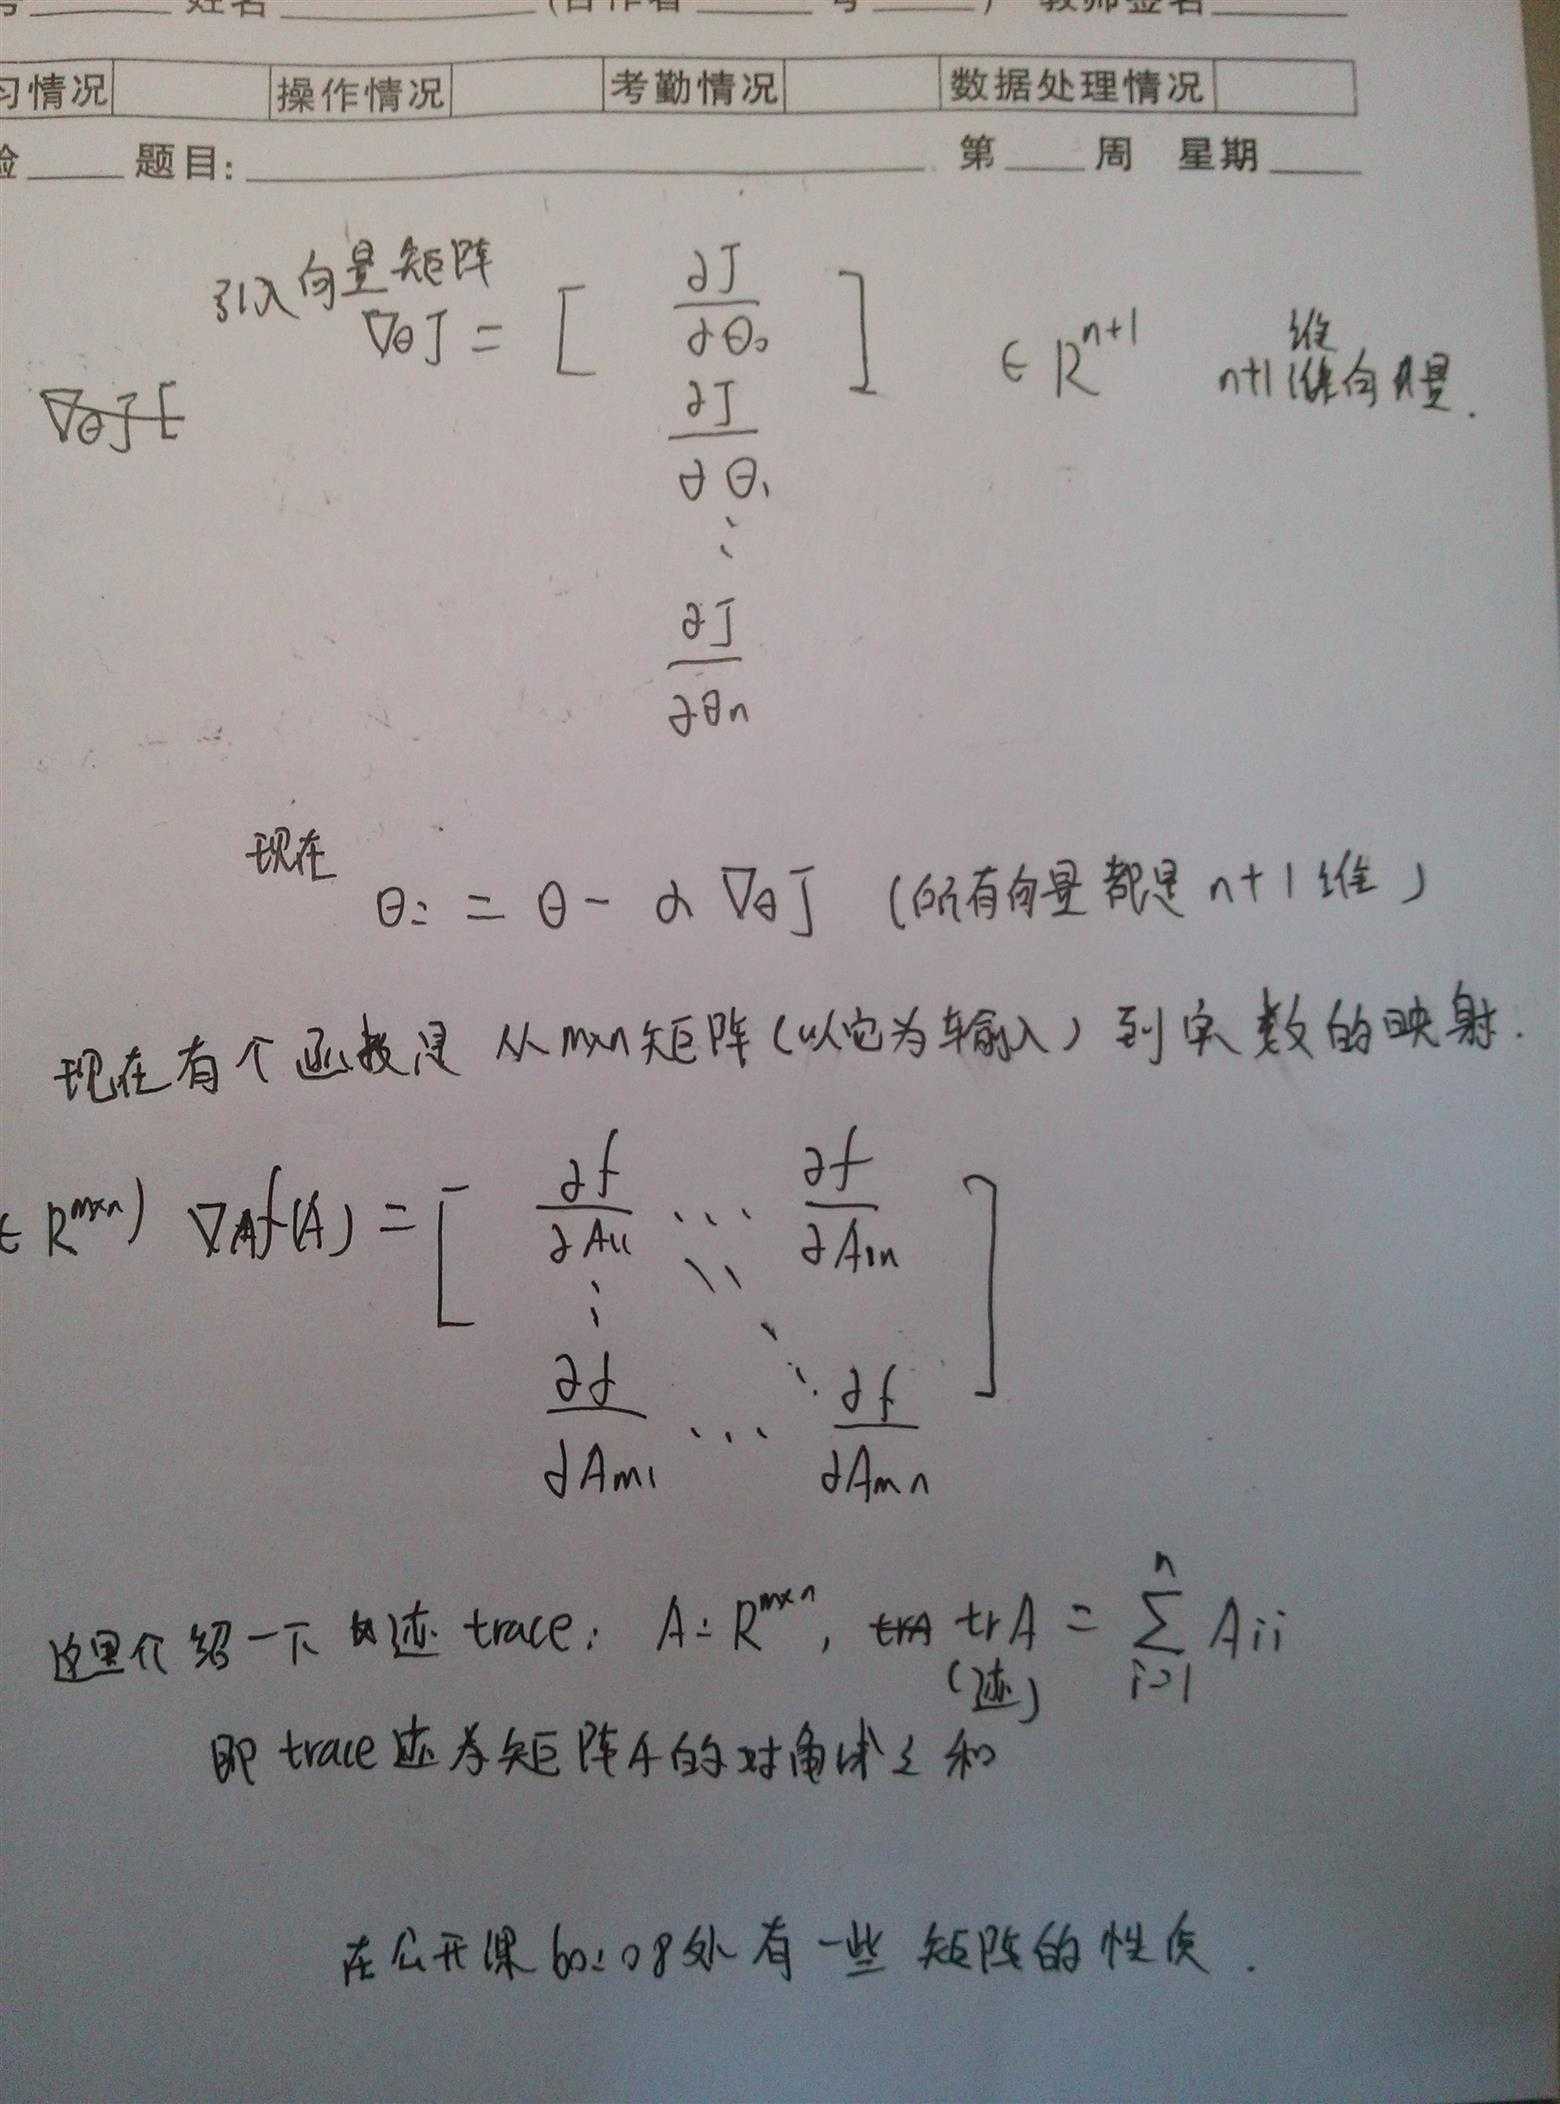 姓名
教师签名
习情况 操作情况 考勤情况 数据处理情况
验 题目: 第 周 星期
引入向量矩阵
∇θJ = [ ∂J/∂θ₀ ] ∈ R^{n+1} n+1维向量.
∇θJ [
∂J/∂θ₁
⋮
∂J/∂θn
现在
θ := θ - α ∇θJ (所有向量都是 n+1 维)
现在有个函数是 从m×n矩阵(以它为输入)到实数的映射.
∈ R^{m×n}) ∇Af(A) = [ ∂f/∂A₁₁ ... ∂f/∂A₁n ]
⋮ ⋱
∂f/∂Am₁ ... ∂f/∂Amn
这里介绍一下迹 trace: A: R^{m×n}, trA trA = ∑_{i=1}^{n} Aii
(迹)
即 trace迹为矩阵A的对角线之和
在公开课60:08处有一些矩阵的性质.